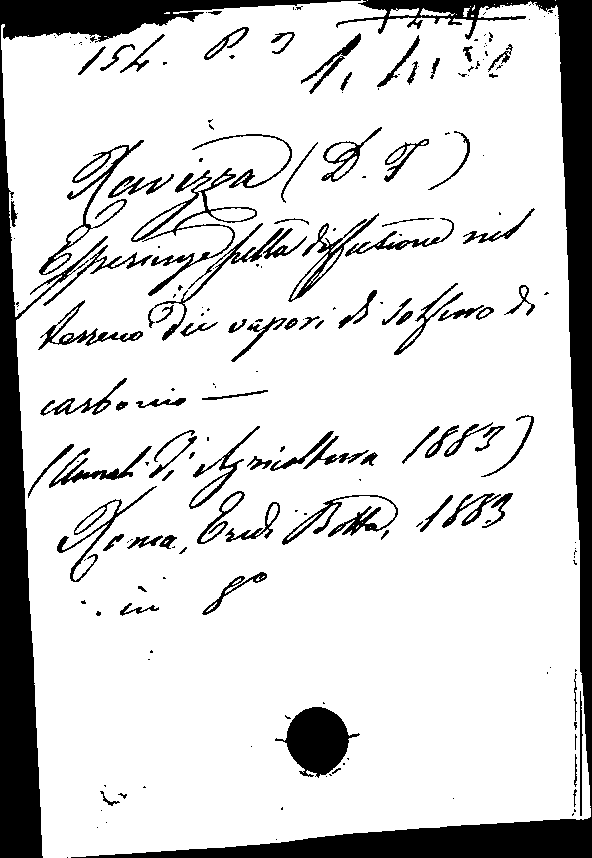 154. P. 3
1. 4. 30
Ravizza (D. F)
Esperienze sulla diffusione nel
terreno dei vapori di solfuro di
carbonio —
(Annali di Agricoltura 1883)
Roma, Eredi Botta, 1883
in 8º